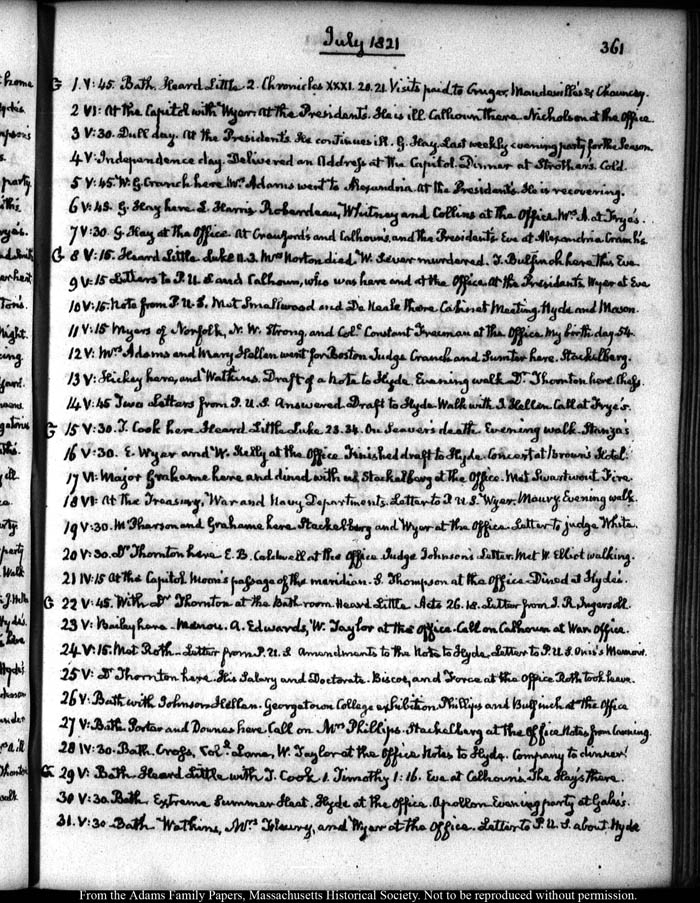 July 1821
361
G 1. V:45. Bath. Heard Little. 2. Chronicles XXXI. 20.21. Visits paid to Cruger, Mandeville's & Chauncey.
2 VI: At the Capitol with Wyer. At the Presidents. He is ill. Calhoun there. Nicholson at the Office.
3 V:30. Dull day. At the President's. He continues ill. G. Hay. Last weekly evening party for the Season.
4 V: Independence day. Delivered an Address at the Capitol. Dinner at Strother's. Cold.
5 V:45. W. G. Cranch here Mrs. Adams went to Alexandria. At the President's. He is recovering.
6 V:45. G. Hay here. L. Harris Roberdeau, Whitney and Collins at the Office. Mrs. A. at Frye's.
7 V:30. G. Hay at the Office. At Crawford's and Calhoun's, and the President's. Eve at Alexandria Cranch's
G 8 V:15. Heard Little Luke Mrs Norton died. W. Sever murdered. T. Bulfinch here this Eve.
9 V:15 Letters to P.U.S and Calhoun, who was here and at the Office. At the Presidents. Wyer at Eve
10 V:15. Note from P.U.S. Met Smallwood and there Cabinet Meeting. Hyde and Mason.
11 V:15 Myers of Norfolk, N. W. Strong, and Coll. Constant Freeman at the Office. My birth day 54.
12 V: Mrs Adams and Mary Hellen went for Boston Judge Cranch and Sumter here. Stackelberg.
13 V: Hickey here, and Watkins. Draft of a Note to Hyde. Evening walk. Dr. Thornton here Chess.
14 V:45 Two Letters from P.U.S. Answered. Draft to Hyde Walk with J. Hellen. Call at Frye's.
G 15 V:30. T. Cook here. Heard Little. Luke 23.34. On Seaver's death. Evening walk. Stanzas
16 V:30. E. Wyer and W. Kelly at the Office Finished draft to Hyde. Concert at Brown's Hotel.
17 VI: Major Grahame here and dined with us Stackelberg at the Office. Met Swartwout Fire.
18 VI: At the Treasury, War and Navy Departments. Letter to P.U.S. Wyer. Maury. Evening walk.
19 V:30. McPherson and Grahame here. Stackelberg and Wyer at the Office. Letter to judge White.
20 V:30. Dr Thornton here E. B. Caldwell at the Office Judge Johnson's Letter. Met W. Elliot walking.
21 IV:15 At the Capitol Moon's passage of the meridian. S. Thompson at the Office Dined at Hyde's.
G 22 V:45. With Dr Thornton at the Bath room. Heard Little. Acts 26.18. Letter from J. R. Ingersoll.
23 V: Bailey here. Menou. A. Edwards, W. Taylor at the Office. Call on Calhoun at War Office.
24 V:15. Met Roth. Letter from P.U.S Amendments to the Note to Hyde. Letter to P.U.S. Onis's Memoir.
25 V: Dr Thornton here. His Salary and Doctorate. Biscoe, and Force at the Office Roth took leave.
26 V: Bath with Johnson Hellen. Georgetown College exhibition Phillips and Bulfinch at the Office
27 V: Bath. Porter and Downes here Call on Mrs Phillips. Stackelberg at the Office Notes from Canning.
28 IV:30. Bath. Crops, Coll. Lane, W. Taylor at the Office Notes to Hyde. Company to dinner.
G 29 V: Bath. Heard Little with T. Cook 1. Timothy 1:16. Eve at Calhoun's. The Hays there.
30 V:30. Bath. Extreme Summer Heat. Hyde at the Office. Apollon Evening party at Gales's.
31. V:30 Bath Watkins, Mrs Fleury, and Wyer at the Office. Letter to P.U.S. about Hyde
From the Adams Family Papers, Massachusetts Historical Society. Not to be reproduced without permission.